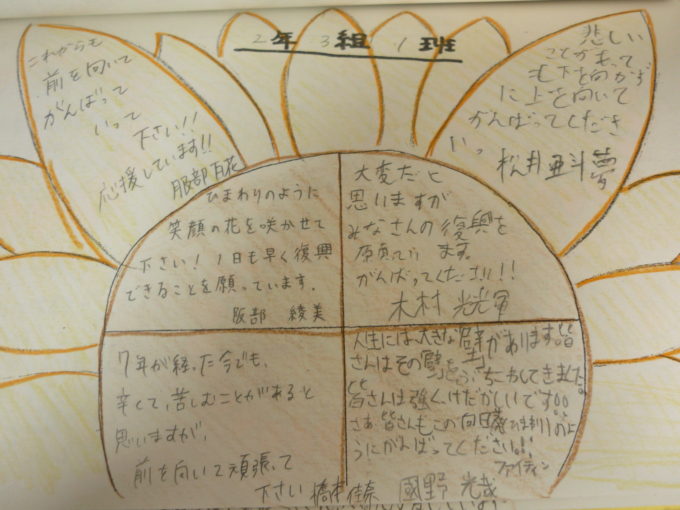 2年3組1班
これからも
前を向いて
がんばって
いって
下さい!!
応援しています!!
服部百花
悲しい
ことがあって
も下を向かず
に上を向いて
がんばってくださ
いっ
松井亜斗夢
ひまわりのように
笑顔の花を咲かせて
下さい! 1日も早く復興
できることを願っています。
阪部 綾美
大変だと
思いますが
みなさんの復興を
願っています。
がんばってください!!
木村
7年が経った今でも、
辛くて、苦しむことがあると
思いますが、
前を向いて頑張って
下さい 橋本佳奈
人生には大きな壁があります。皆
さんはその壁をぶちこわしてきました。
皆さんは強くけだかいです。
さあ皆さんもこの向日葵(ひまわり)のよ
うにがんばってください!!
ファイティン
國野 光哉